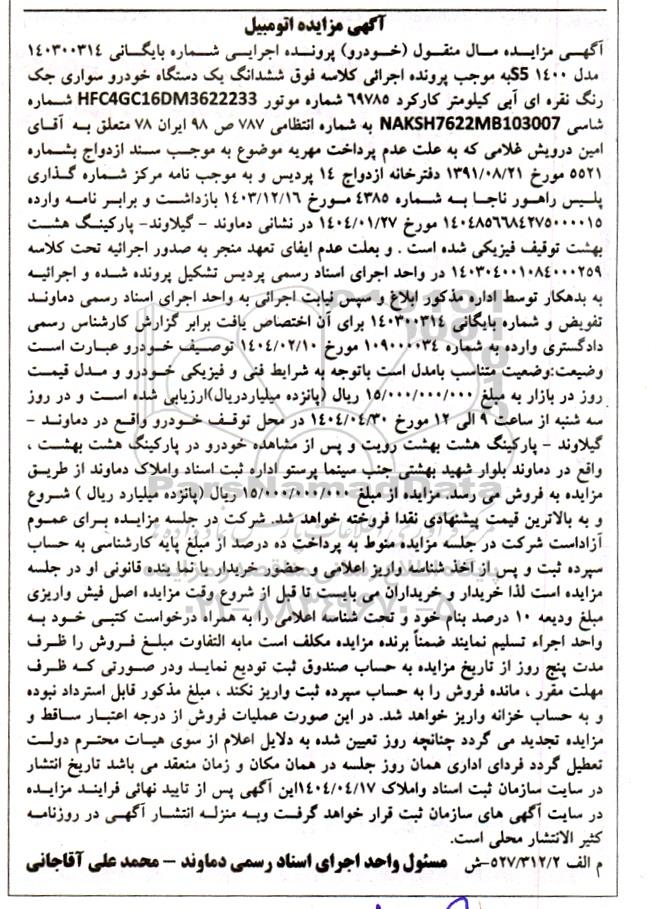 آگهی مزایده اتومبیل
آگهی مزایده مال منقول (خودرو) پرونده اجرایی شماره بایگانی ۱۴۰۳۰۰۳۱۴
مدل ۱۴۰۰ S5به موجب پرونده اجرائی کلاسه فوق ششدانگ یک دستگاه خودرو سواری جک
رنگ نقره ای آبی کیلومتر کارکرد ۶۹۷۸۵ شماره موتور HFC4GC16DM3622233 شماره
شاسی NAKSH7622MB103007 به شماره انتظامی ۷۸۷ ص ۹۸ ایران ۷۸ متعلق به آقای
امین درویش غلامی که به علت عدم پرداخت مهریه موضوع به موجب سند ازدواج بشماره
۵۵۲۱ مورخ ۱۳۹۱/۰۸/۲۱ دفترخانه ازدواج ۱۴ پردیس و به موجب نامه مرکز شماره گذاری
پلیس راهور ناجا به شماره ۴۳۸۵ مورخ ۱۴۰۳/۱۲/۱۶ بازداشت و برابر نامه وارده
۱۴۰۴۸۵۶۶۸۴۲۷۵۰۰۰۰۱۵ مورخ ۱۴۰۴/۰۱/۲۷ در نشانی دماوند - گیلاوند- پارکینگ هشت
بهشت توقیف فیزیکی شده است . و بعلت عدم ایفای تعهد منجر به صدور اجرائیه تحت کلاسه
۱۴۰۳۰۴۰۰۱۰۸۴۰۰۰۲۵۹ در واحد اجرای اسناد رسمی پردیس تشکیل پرونده شده و اجرائیه
به بدهکار توسط اداره مذکور ابلاغ و سپس نیابت اجرائی به واحد اجرای اسناد رسمی دماوند
تفویض و شماره بایگانی ۱۴۰۳۰۰۳۱۴ برای آن اختصاص یافت برابر گزارش کارشناس رسمی
دادگستری وارده به شماره ۱۰۹۰۰۰۰۳۴ مورخ ۱۴۰۴/۰۲/۱۰ توصیف خودرو عبارت است
وضیعت:وضعیت متناسب بامدل است باتوجه به شرایط فنی و فیزیکی خودرو و مدل قیمت
روز در بازار به مبلغ ۱۵/۰۰۰/۰۰۰/۰۰۰ ریال (پانزده میلیاردریال)ارزیابی شده است و در روز
سه شنبه از ساعت ۹ الی ۱۲ مورخ ۱۴۰۴/۰۴/۳۰ در محل توقف خودرو واقع در دماوند -
گیلاوند - پارکینگ هشت بهشت رویت و پس از مشاهده خودرو در پارکینگ هشت بهشت ،
واقع در دماوند بلوار شهید بهشتی جنب سینما پرستو اداره ثبت اسناد واملاک دماوند از طریق
مزایده به فروش می رسد. مزایده از مبلغ ۱۵/۰۰۰/۰۰۰/۰۰۰ ریال (پانزده میلیارد ریال ) شروع
و به بالاترین قیمت پیشنهادی نقدا فروخته خواهد شد. شرکت در جلسه مزایده برای عموم
آزاداست شرکت در جلسه مزایده منوط به پرداخت ده درصد از مبلغ پایه کارشناسی به حساب
سپرده ثبت و پس از اخذ شناسه واریز اعلامی و حضور خریدار یا نما ینده قانونی او در جلسه
مزایده است لذا خریدار و خریداران می بایست تا قبل از شروع وقت مزایده اصل فیش واریزی
مبلغ ودیعه ۱۰ درصد بنام خود و تحت شناسه اعلامی را به همراه درخواست کتبی خود به
واحد اجراء تسلیم نمایند ضمناً برنده مزایده مکلف است مابه التفاوت مبلغ فروش را ظرف
مدت پنج روز از تاریخ مزایده به حساب صندوق ثبت تودیع نماید ودر صورتی که ظرف
مهلت مقرر ، مانده فروش را به حساب سپرده ثبت واریز نکند ، مبلغ مذکور قابل استرداد نبوده
و به حساب خزانه واریز خواهد شد. در این صورت عملیات فروش از درجه اعتبار ساقط و
مزایده تجدید می گردد چنانچه روز تعیین شده به دلایل اعلام از سوی هیات محترم دولت
تعطیل گردد فردای اداری همان روز جلسه در همان مکان و زمان منعقد می باشد تاریخ انتشار
در سایت سازمان ثبت اسناد واملاک ۱۴۰۴/۰۴/۱۷این آگهی پس از تایید نهائی فرایند مزایده
در سایت آگهی های سازمان ثبت قرار خواهد گرفت وبه منزله انتشار آگهی در روزنامه
کثیر الانتشار محلی است.
م الف ۵۲۷/۳۱۲/۲-ش مسئول واحد اجرای اسناد رسمی دماوند - محمد علی آقاجانی
ParsNamadData
۰۲۱-۸۸۳۴۹۶۷۰-۵